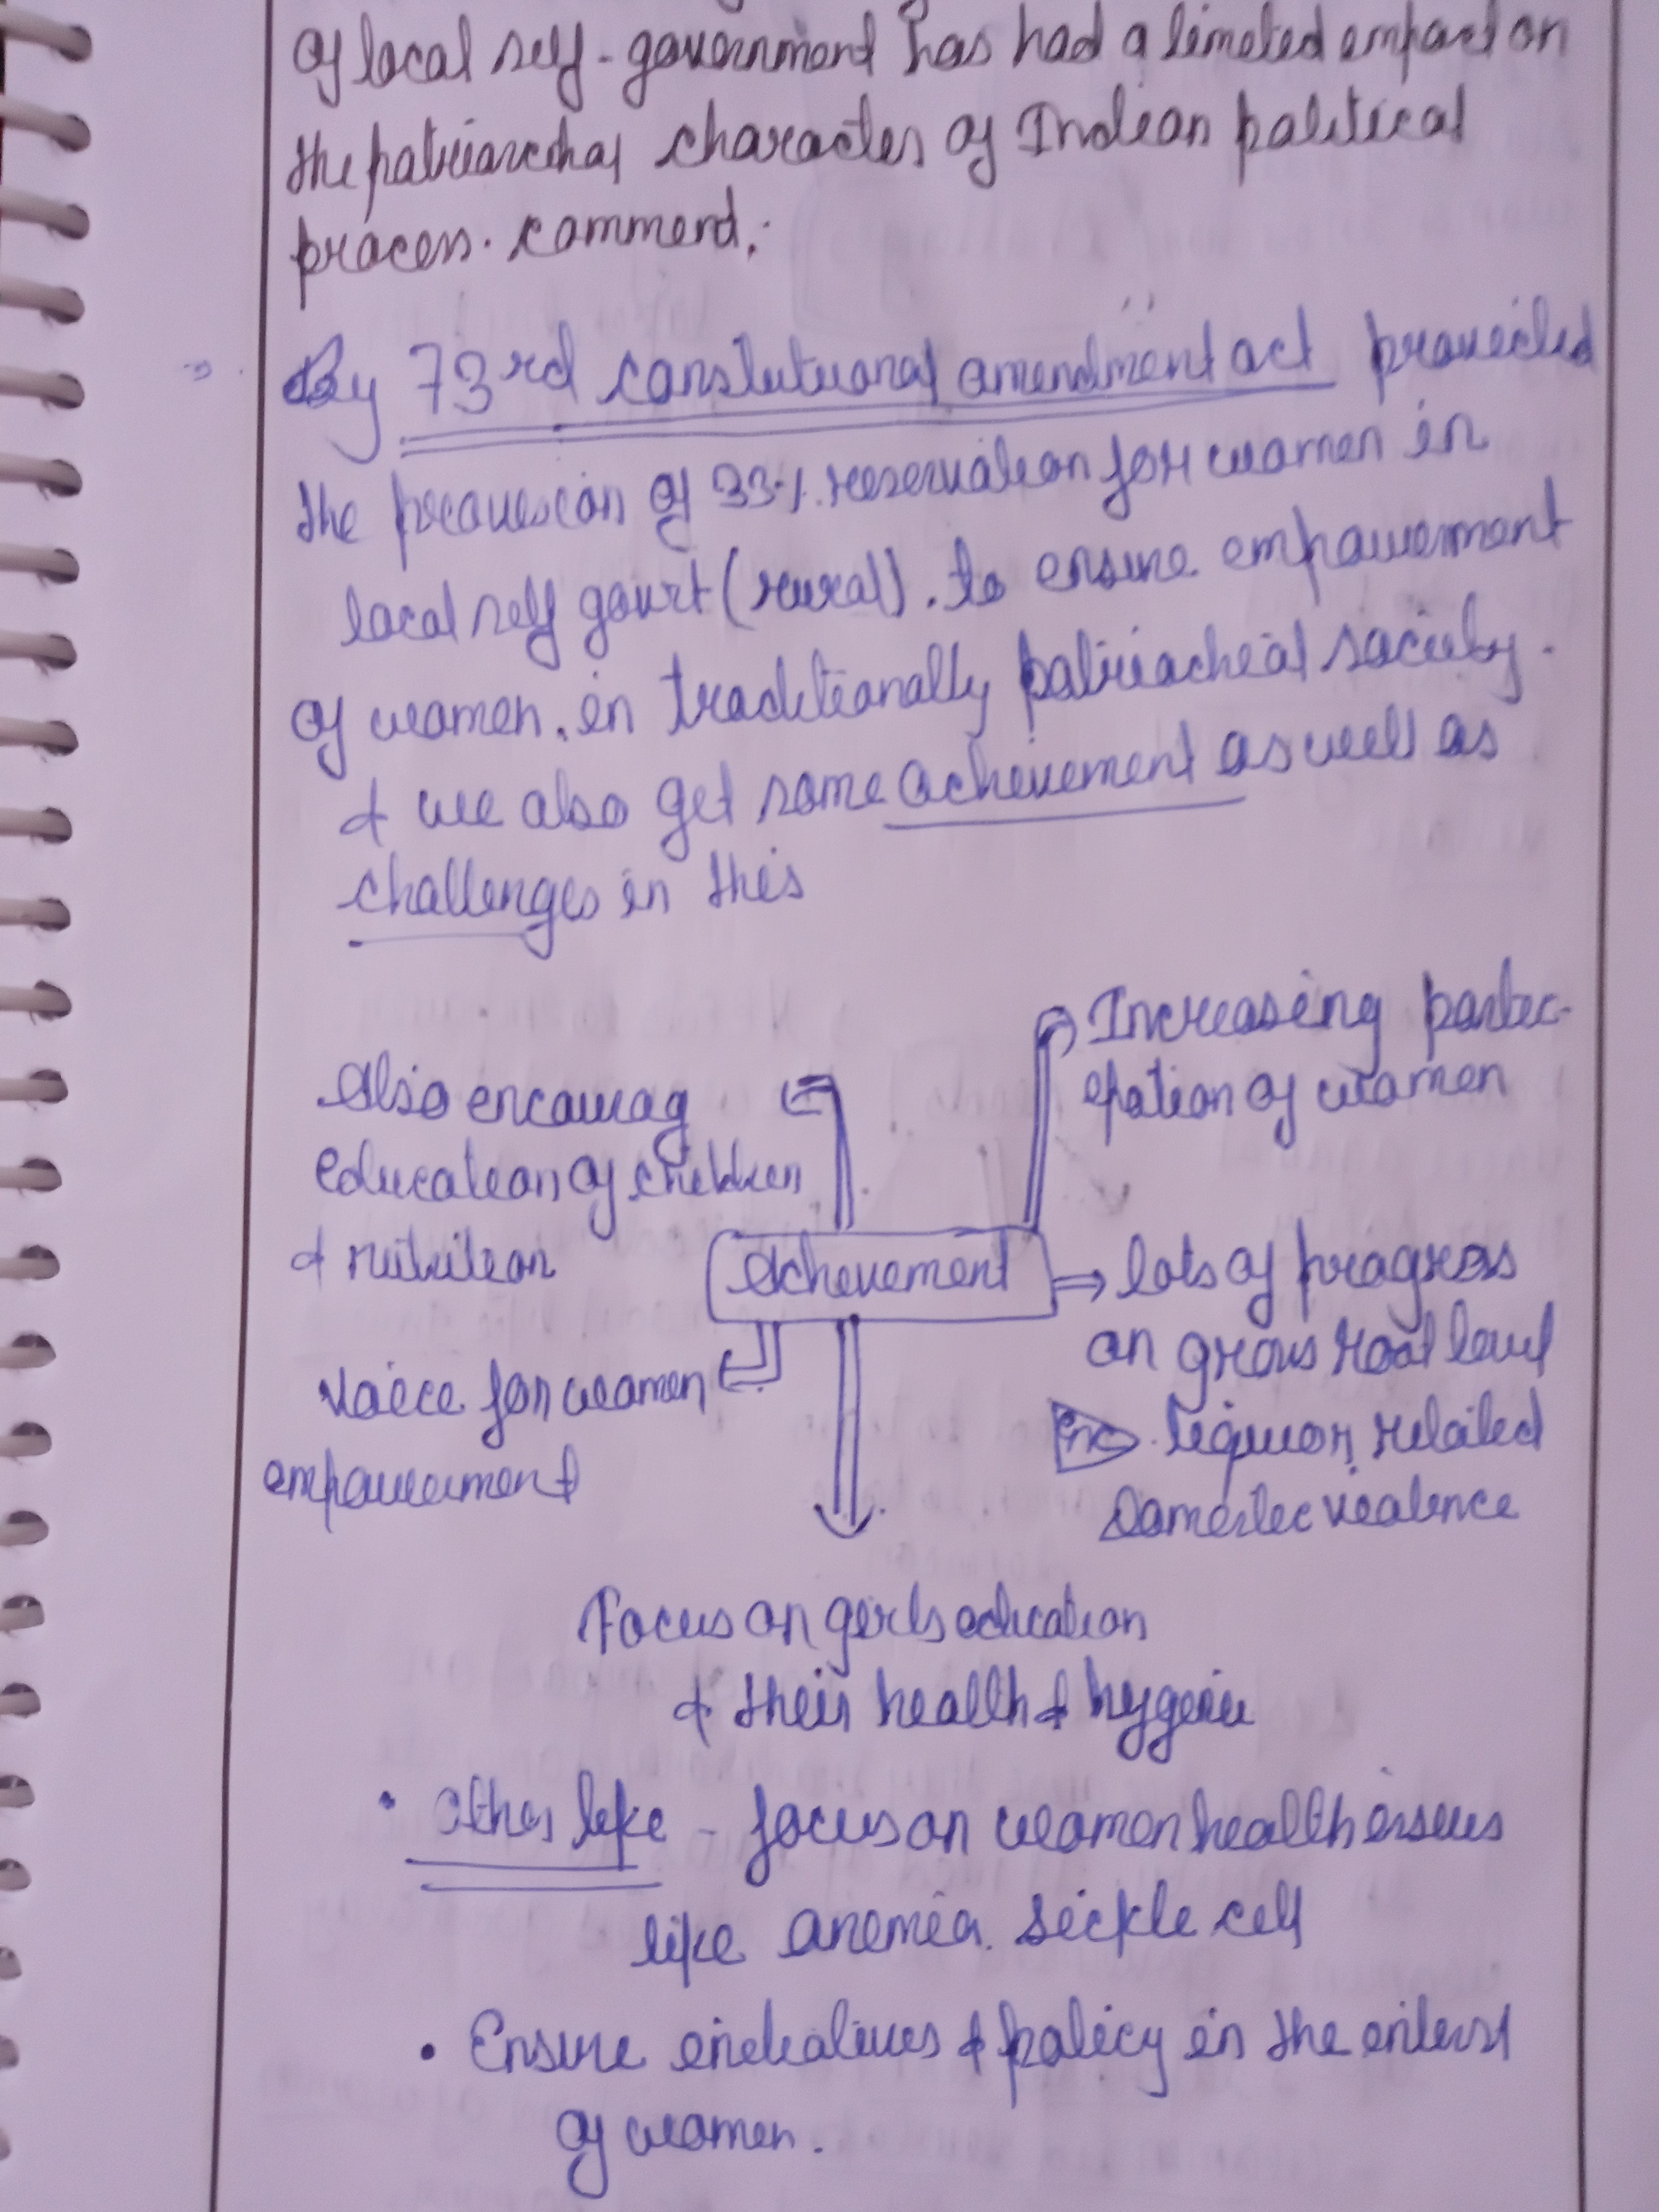 of local self-government has had a limited impact on
the patriarchal character of Indian political
process. comment.
By 73rd constutuional amendment act provided
the provision of 33% reservation for women in
local self govrt (rural). to ensure empowerment
of women. in traditionally patriacheal society.
& we also get some achevement as well as
challenges in this
Increasing partic-
ipation of women
Also encourag
education of children
& nutrition
Achevement
lots of progress
on grous root level
liquor related
Domestic voalence
Voice for women
empowerment
Focus on girls education
& their health & hygenie
• Other like - focus on women health issues
like anemia. sickle cell
• Ensure & policy in the interst
of women.